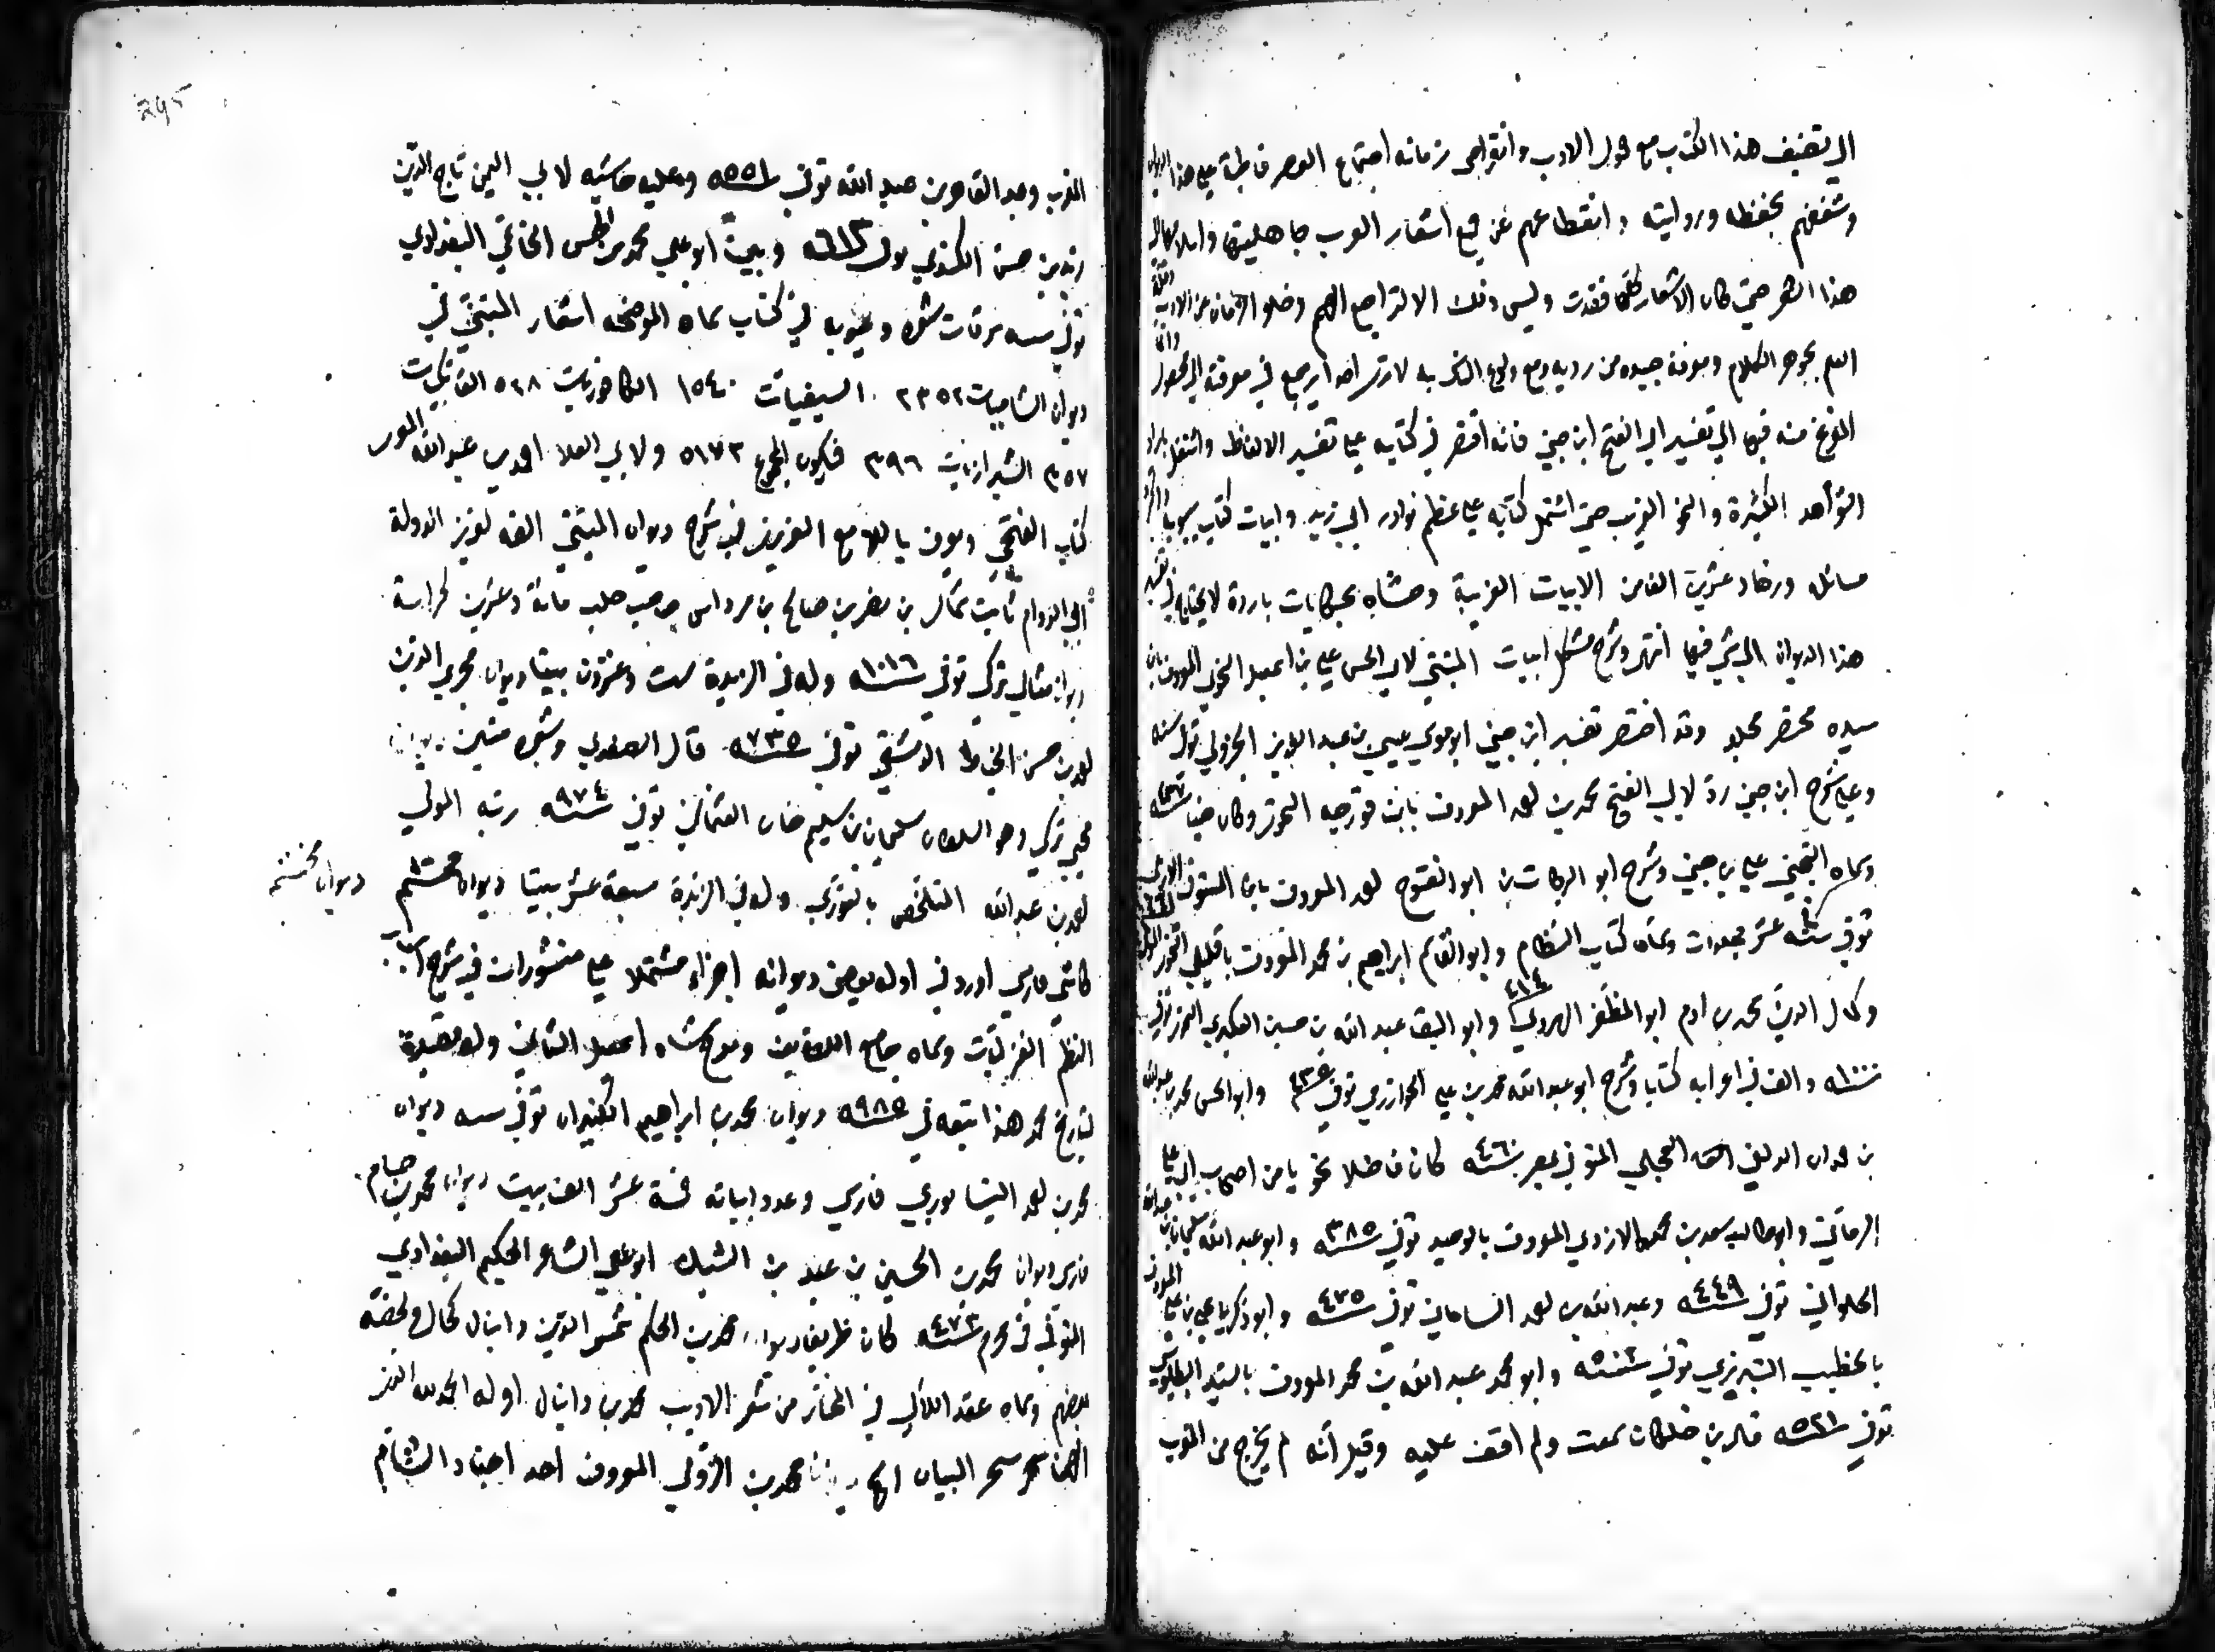 الى تصنيف هذا الكتاب مع خمول الادب وانقراض زمانه اجتماع العصر قاطبة على هذا الديوان
وشغفهم بحفظه وروايته وانقطاعهم عن جميع اشعار العرب جاهليتها واسلامها الى
هذا الشعر حتى كان الاشعار كلها فقدت وليس ذلك الا لتراجع الهمم وخلو الزمان عن الادب
العلم بجوهر الكلام ومعرفة جيده من رديه ومع ولوع الناس به لا ترى احدا يرجع في معرفته الى محصول
الفرغ منه فيها الى تفسير ابي الفتح ابن جني فانه اقتصر في كتابه على تفسير الالفاظ واشتغل بايراد
الشواهد الكثيرة والنحو الغريب حتى اشتمل كتابه على عظم نوادر ابي زيد وابيات كتاب سيبويه
مسائله وزهاد عشرين الف من الابيات الغريبة وحشاه بحكايات باردة لا يحتاج في تفسير
هذا الديوان الى شي فيها انتهى وشرح مشكل ابيات المتنبي لابي الحسن علي بن اسمعيل النحوي المعروف بابن
سيده مختصر مجلد وقد اختصر تفسير ابن جني ابو موسى عيسى بن عبد العزيز الجزولي توفي سنة
وعلى شرح ابن جني رد لابي الفتح محمد بن احمد المعروف بابن فورجه النحوي وكان حيا
وسماه التجني على بن جني وشرح ابو البركات بن ابو الفتوح احمد المعروف بابن المستوفي الاربلي
توفي سنة عشر مجلدات وسماه كتاب النظام وابو القاسم ابراهيم بن محمد المعروف بافليلي النحوي
وكمال الدين محمد بن ادم ابو المظفر الهروي ٤١٤ وابو البقا عبد الله بن حسين العكبري النحوي توفي
والف في اعرابه كتابا وشرح ابو عبد الله محمد بن علي الخوارزمي توفي ٤٢٥ وابو الحسن محمد بن عبد الله
بن حمدان الدلفي العجلي المتوفي بمصر سنة ٤٦٠ كان فاضلا نحويا من اصحاب ابي علي
الرماني وابو طالب سعد بن محمد الازدي المعروف بالوحيد توفي سنة ٣٨٥ وابو عبد الله سليمان بن عبد الله
الحلواني توفي سنة ٤٤٩ وعبد الله بن احمد الساماني توفي سنة ٤٧٥ وابو زكريا يحيى بن علي المعروف
بالخطيب التبريزي توفي سنة ٥٠٢ وابو محمد عبد الله بن محمد المعروف بالسيد البطليوسي
توفي سنة ٥٢١ قال بن خلكان سمعت ولم اقف عليه وقيل أنه لم يخرج من المغرب
المغرب وعبد القاهر بن عبد الله توفي سنة ٥٥١ وعليه حاشية لابي اليمن تاج الدين
زيد بن حسن الكندي توفي سنة ٦١٣ وبين ابو علي محمد بن الحسن الحاتمي البغدادي
توفي سنه سرقات شعره وعيوبه في كتاب سماه الموضحه اشعار المتنبي في
ديوان الشاميات ٢٣٥٢ السيفيات ١٥٤٠ الكافوريات ٥٢٨ الفاتكيات
٣٥٧ الشيرازيات ٣٩٦ فيكون المجموع ٥١٧٣ ولابي العلا احمد بن عبد الله المعري
كتاب الفتحي ويعرف باللامع العزيزي في شرح ديوان المتنبي الفه لعزيز الدولة
ابي الدوام ثابت ثمال بن نصر بن صالح بن مرداس صاحب حلب مائة وعشرين كراسة
ديوان مثالي تركي توفي سنة ١٠١٦ وله في الزبدة ست وعشرون بيتا ديوان مجير الدين
احمد بن حسن الخياط الدمشقي توفي سنة ٧٣٥ قال الصفدي وشعره متين
محبي تركي وهو السلطان سليمان بن سليم خان العثماني توفي سنة ٩٧٤ رتبه المولى
احمد بن عبد الله المتخلص بالفوري وله في الزبدة سبعة عشر بيتا ديوان محتشم
ديوان محتشم
كاشي فارسي اورد في اوله بعض ديوانه اجزاء مشتملا على منثورات في شرح اسباب
النظم الغزليات وسماه جامع اللطايف ومدح شاه اسمعيل الثاني وله قصيدة
تاريخ محمد هذا تبعه في سنة ٩٨٥ ديوان محمد بن ابراهيم الكيزان توفي سنه ديوان
محمد بن احمد النيسابوري فارسي وعدد ابياته خمسة عشر الف بيت ديوان محمد بن حسام
فارسي ديوان محمد بن الحسين بن عبد بن الشبل ابو علي الشاعر الحكيم البغدادي
المتوفي في محرم سنة ٤٧٣ كان ظريفا ديوان محمد بن الحكم شمس الدين دانيال كحال ولخصه
بعضهم وسماه عقد اللآلي في المختار من شعر الاديب محمد بن دانيال اوله الحمد لله الذي
سحر البيان الخ ديوان محمد بن الزولي المعروف احد اجناد الشام